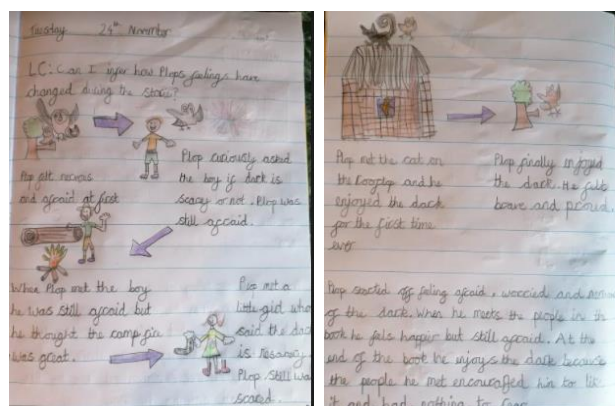 Tuesday 24th November
LC: Can I infer how Plops feelings have
changed during the story?
Plop felt nervous
and afraid at first
Plop curiously asked
the boy if dark is
scary or not. Plop was
still afraid.
When Plop met the boy
he was still afraid but
he thought the camp fire
was great.
Plop met a
little girl who
said the dark
is
Plop still was
scared.
Plop met the cat on
the rooftop and he
enjoyed the dark
for the first time
ever
Plop finally enjoyed
the dark. He felt
brave and proud.
Plop started off feeling afraid, worried and
of the dark. When he meets the people in the
book he fels happier but still afraid. At the
end of the book he enjoys the dark because
the people he met encouraged him to
it and had nothing to